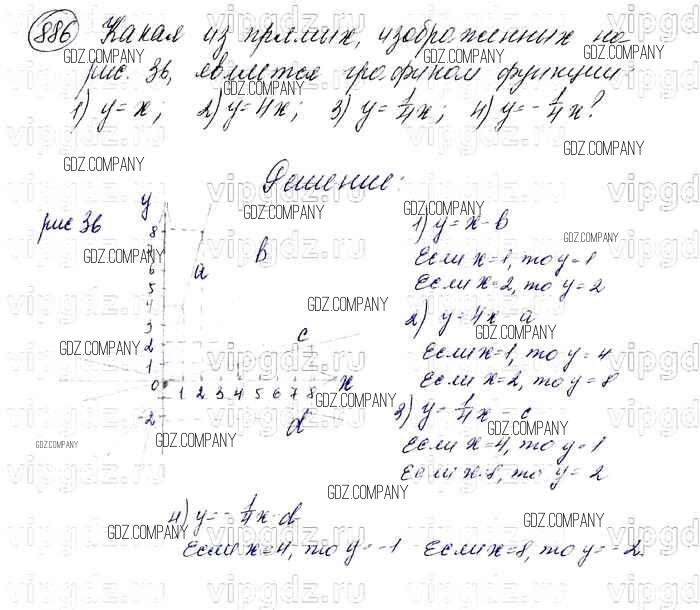 886 Какая из прямых, изображенных на
рис. 36, является графиком функции
1) y = x; 2) y = 4x; 3) y = 1/4 x; 4) y = - 1/4 x?
Решение:
рис 36
y
8
7
6
5
4
3
2
1
0
-2
a
b
c
d
1 2 3 4 5 6 7 8 x
1) y = x - b
Если x = 1, то y = 1
Если x = 2, то y = 2
2) y = 4x - a
Если x = 1, то y = 4
Если x = 2, то y = 8
3) y = 1/4 x - c
Если x = 4, то y = 1
Если x = 8, то y = 2
4) y = - 1/4 x - d
Если x = 4, то y = -1 Если x = 8, то y = -2.
GDZ.COMPANY
vipgdz.ru